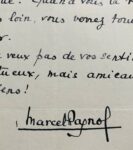 . Quand vous la
loin, vous venez tou
r.
veux pas de vos senti
tueux, mais amicau
iens!
Marcel Pagnol